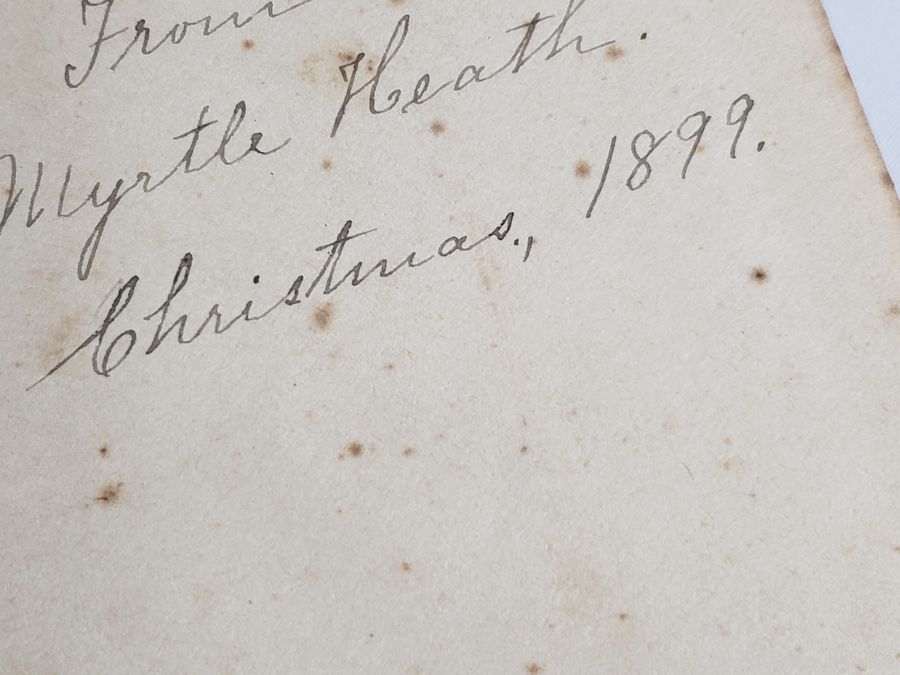 From
Myrtle Heath.
Christmas, 1899.